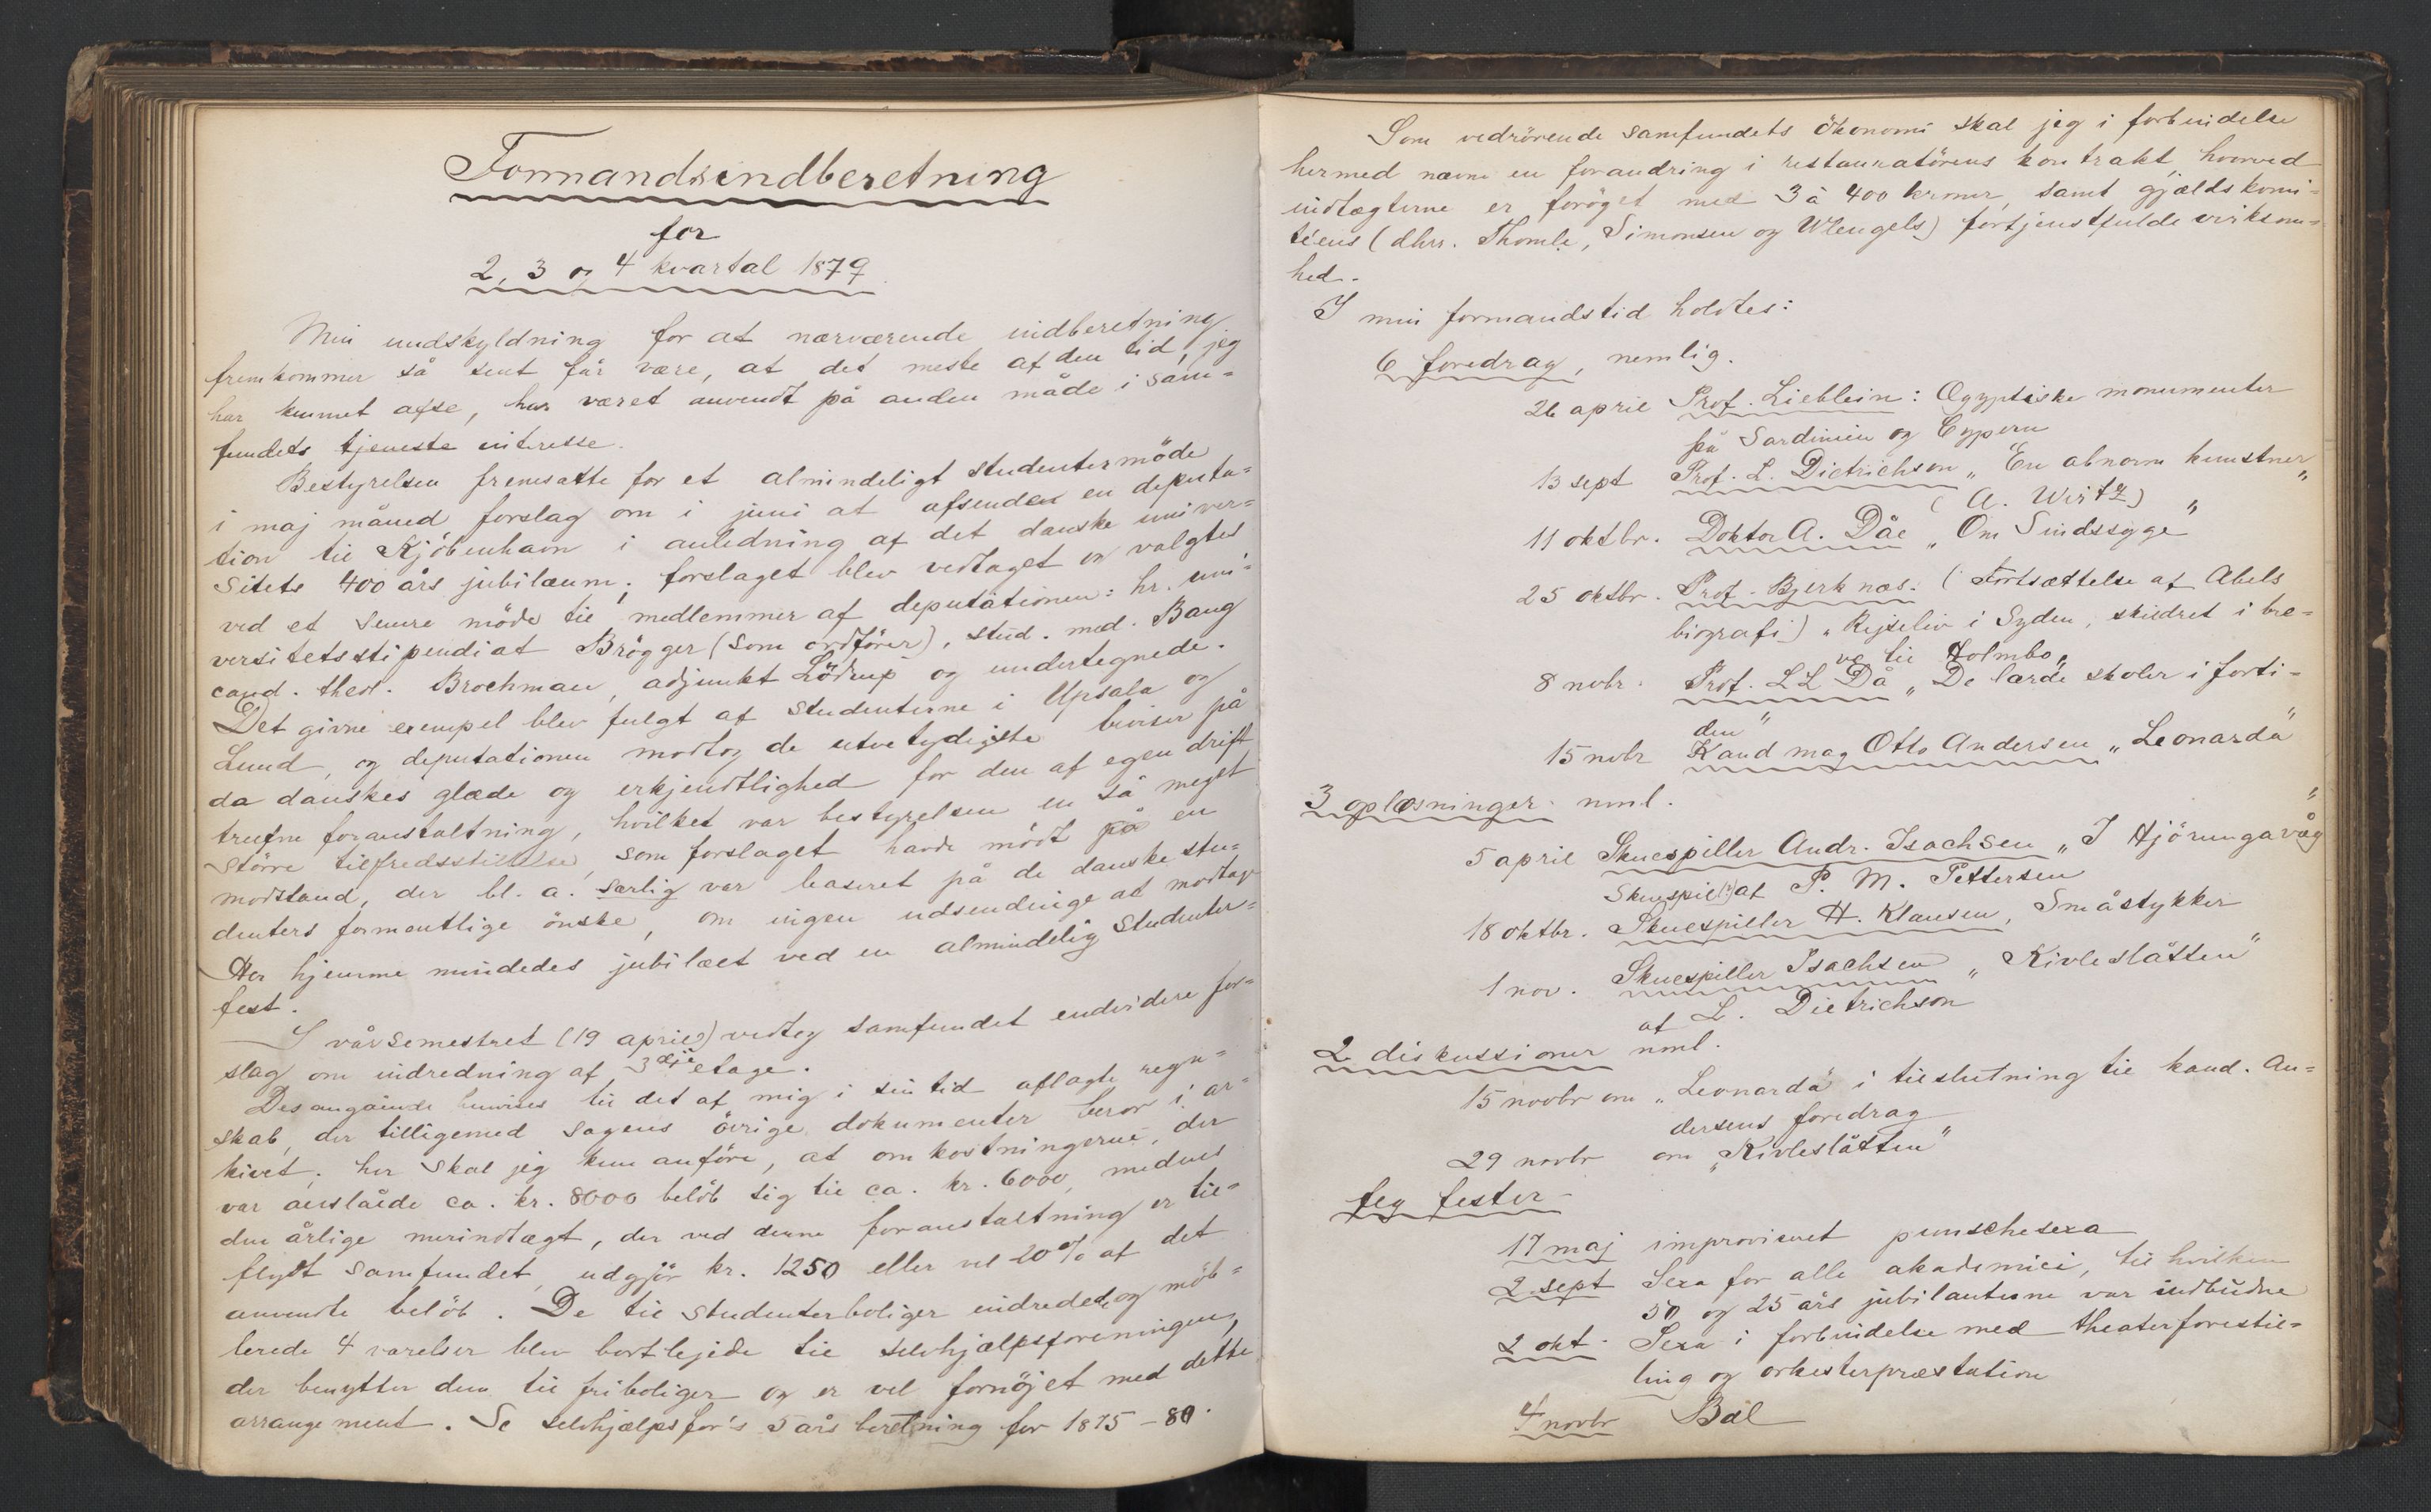 Formandsindberetning
for
2, 3 og 4 kvartal 1879.
Min undskyldning for at nærværende indberetning
fremkommer så sent får være, at det meste af den tid, jeg
har kunnet afse, har været anvendt på anden måde i sam=
fundets tjeneste interesse.
Bestyrelsen fremsatte for et almindeligt studentermöde
i maj måned forslag om i juni at afsende en deputa=
tion til Kjöbenhavn i anledning af det danske univer=
sitets 400 års jubilæum; forslaget blev vedtaget og valgtes
ved et senere möde til medlemmer af deputationen: hr. uni=
versitetsstipendiat Brögger (som ordförer), stud. med. Bang
cand. theol. Brochman, adjunkt Lödrup og undertegnede.
Det givne exempel blev fulgt af studenterne i Upsala og
Lund, og deputationen modtog de utvetydigste beviser på
da danskes glæde og erkjendtlighed for den af egen drift
trufne foranstaltning, hvilket var bestyrelsen en så meget
större tilfredsstillelse, som forslaget havde mödt på en
modstand, der bl. a. særlig var baseret på de danske stu=
denters formentlige önske, om ingen udsendinge at modtage
Her hjemme mindedes jubilæet ved en almindelig studenter=
fest.
I vårsemestret (19 april) vedtog samfundet endvidere for=
slag om indredning af 3die etage.
Desangående henvises til det af mig i sin tid aflagte regn=
skab, der tilligemed sagens övrige dokumenter beror i ar=
kivet; her skal jeg kun anföre, at omkostningerne, der
var anslåede ca. kr. 8000 belöb sig til ca. kr. 6000, medens
den årlige merindtægt, der ved denne foranstaltning er til=
flydt samfundet, udgjör kr. 1250 eller vel 20% af det
anvendte belöb. De til studenterboliger indredede og möb=
lerede 4 værelser blev bortlejede til selvhjælpsforeningen,
der benytter dem til friboliger og er vel fornöjet med dette
arrangement. Se selvhjælpsfor's 5 års beretning for 1875–80.
Som vedrörende samfundets ökonomi skal jeg i forbindelse
hermed nævne en forandring i restauratörens kontrakt, hvorved
indtægterne er foröget med 3 à 400 kroner, samt gjældskomi=
téens (dhrr. Thomle, Simonsen og Wengels) fortjenstfulde virksom=
hed.
I min formandstid holdtes:
6 foredrag, nemlig.
26 april Prof. Lieblein: Ægyptiske monumenter
på Sardinien og Cypern
13 sept Prof. L. Dietrichson „En abnorm kunstner"
(A. Wirtz)
11 oktbr. Doktor A. Dåe „Om Sindssyge"
25 oktbr. Prof. Bjerknæs: (Fortsættelse af Abels
biografi) „Rejseliv i Syden, skildret i bre=
ve til Holmbo"
8 nobr. Prof. L L Då „De lærde skoler i forti=
den"
15 nobr Kand mag Otto Andersen „Leonarda"
3 oplæsninger nml.
5 april Skuespiller Andr. Isachsen „I Hjörungavåg"
Skuespil (?) af P. M. Pettersen
18 oktbr. Skuespiller H. Klausen, Småstykker
1 nov. Skuespiller Isachsen „Kivleslåtten"
af L. Dietrichson
2 diskussioner nml.
15 novbr om „Leonarda" i tilslutning til kand. An=
dersens foredrag
29 novbr om „Kivleslåtten"
fester
17 maj improviseret punschesexa
2 sept Sexa for alle akademici, til hvilken
50 og 25 års jubilanterne var indbudne
2 okt. Sexa i forbindelse med theaterforestil=
ling og orkesterpræstation
4 novbr Bal